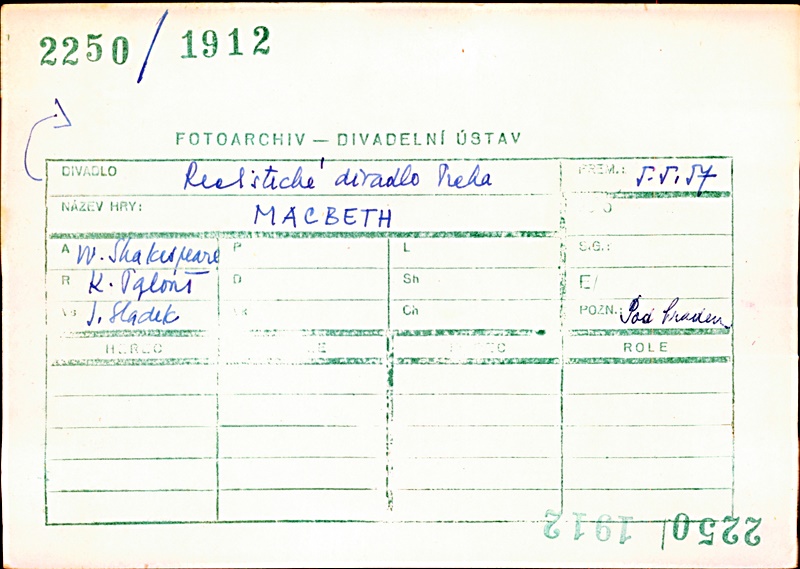 2250/1912
FOTOARCHIV — DIVADELNÍ ÚSTAV
DIVADLO Realistické divadlo PREM.: 5.5.57
NÁZEV HRY: MACBETH
A W. Shakespeare P L S.G.:
R K. Palouš D Sh E/
J. Sládek Ch POZN.: Pod hradem
HEREC ROLE
2250/1912